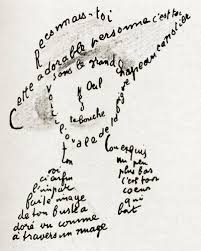 Reconnais-toi
Cette adorable personne c'est toi
Sous le grand chapeau canotier
Oeil
Nez
la bouche
Voici l'ovale de ta figure
ton cou exquis
voi
ci enfin
l'impar
faite image
de ton buste a
doré vu comme
à travers un nuage
un peu
plus bas
c'est ton
coeur
qui
bat